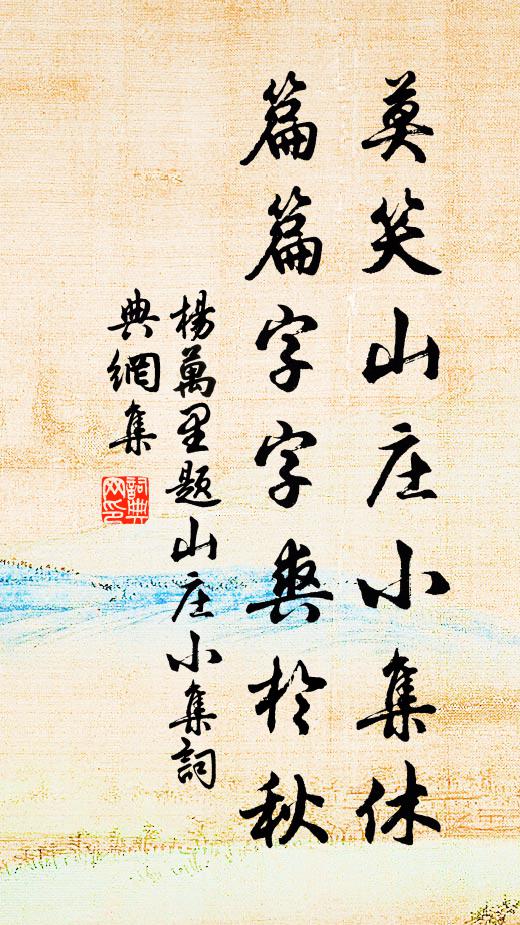 莫笑山庄小集休
篇篇字字爽於秋
楊萬里題山庄小集詞
典網集
詞典
网印